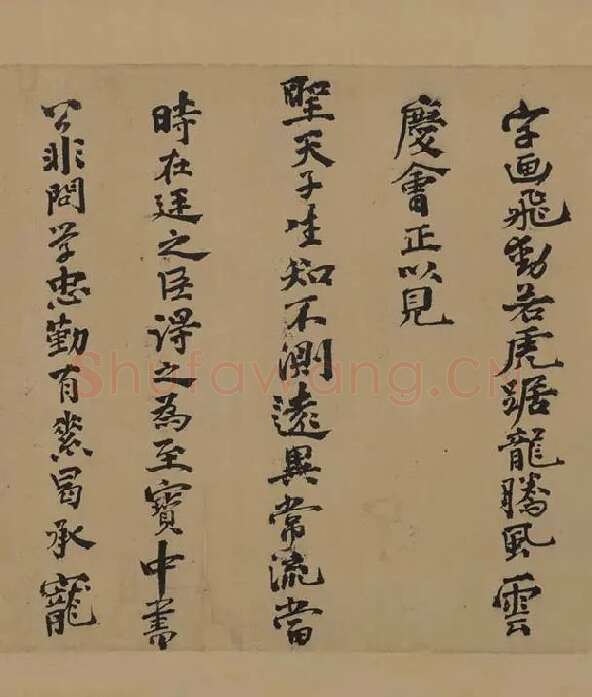 字画飛動若虎踞龍騰風雲
慶會正以見
聖天子生知不測遠異常流當
時在廷之臣得之為至寶中書
公非問学忠勤有素曷承寵
Shufawang.CN